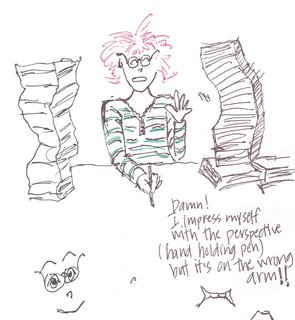 Damn!
I impress myself
with the perspective
(hand holding pen)
but it's on the wrong
arm!!